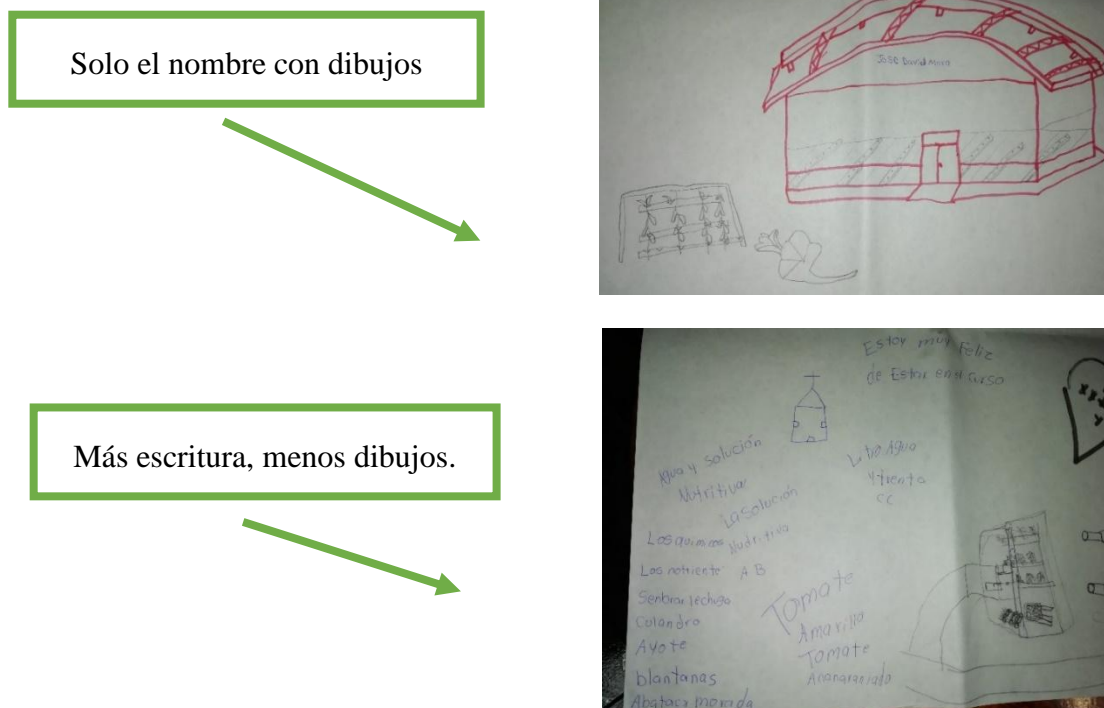 Solo el nombre con dibujos
Jose David Mora
Más escritura, menos dibujos.
Estoy muy Feliz
de Estar en el curso
Agua y solución
Nutritiva
La solución
Nudritiva
Litro Agua
y treinta
cc
Los quimicos
Los notriente A B
Senbrar lechuga
Culandro
Ayote
blantanas
Abataca morada
Tomate
Amarillo
Tomate
Ananaraniado